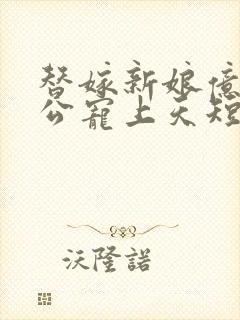 替嫁新娘億
公寵上天短
沃隆諾